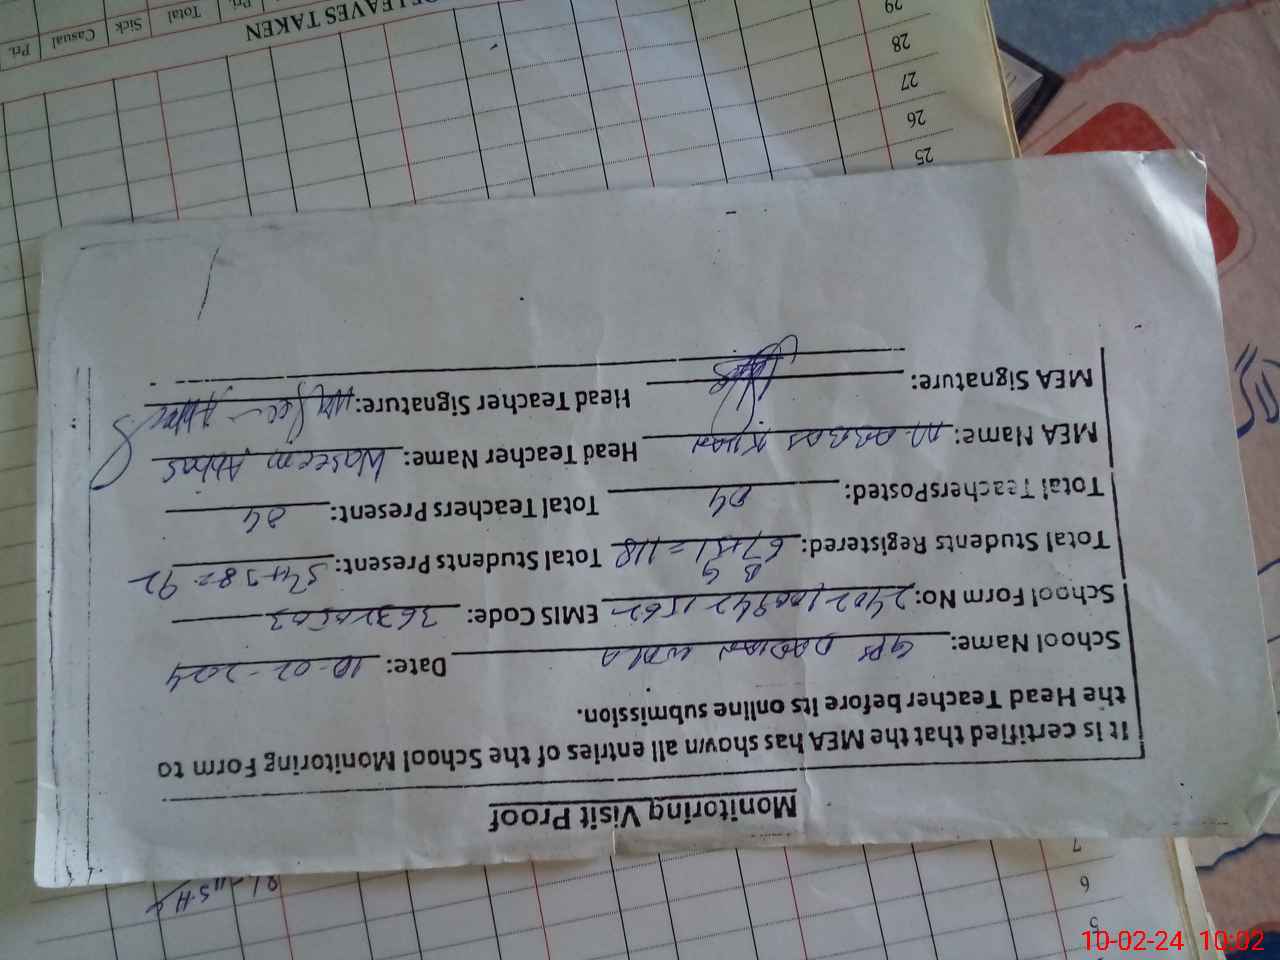 Monitoring Visit Proof
It is certified that the MEA has shown all entries of the School Monitoring Form to
the Head Teacher before its online submission.
School Name: GPS Date: 10-02-2024
School Form No: EMIS Code:
B G
Total Students Registered: 67+51=118 Total Students Present: 54+38=92
Total TeachersPosted: 04 Total Teachers Present: 04
MEA Name: M. ABBAS KHAN Head Teacher Name: Waseem Abbas
MEA Signature: Head Teacher Signature:
LEAVES TAKEN
Pri. Casual Sick Total Pri.
29
28
27
26
25
7
6
5
10-02-24 10:02